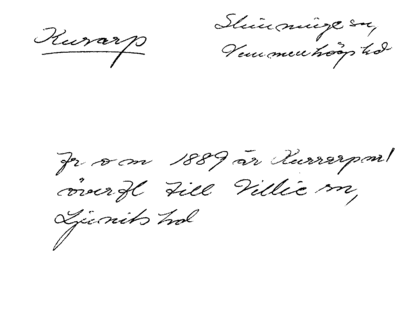 Kurarp
Skurup sn,
Vemmenhögs hd
Fr o m 1889 är Kurrarp nr 1
överfl till Villie sn,
Ljunits hd